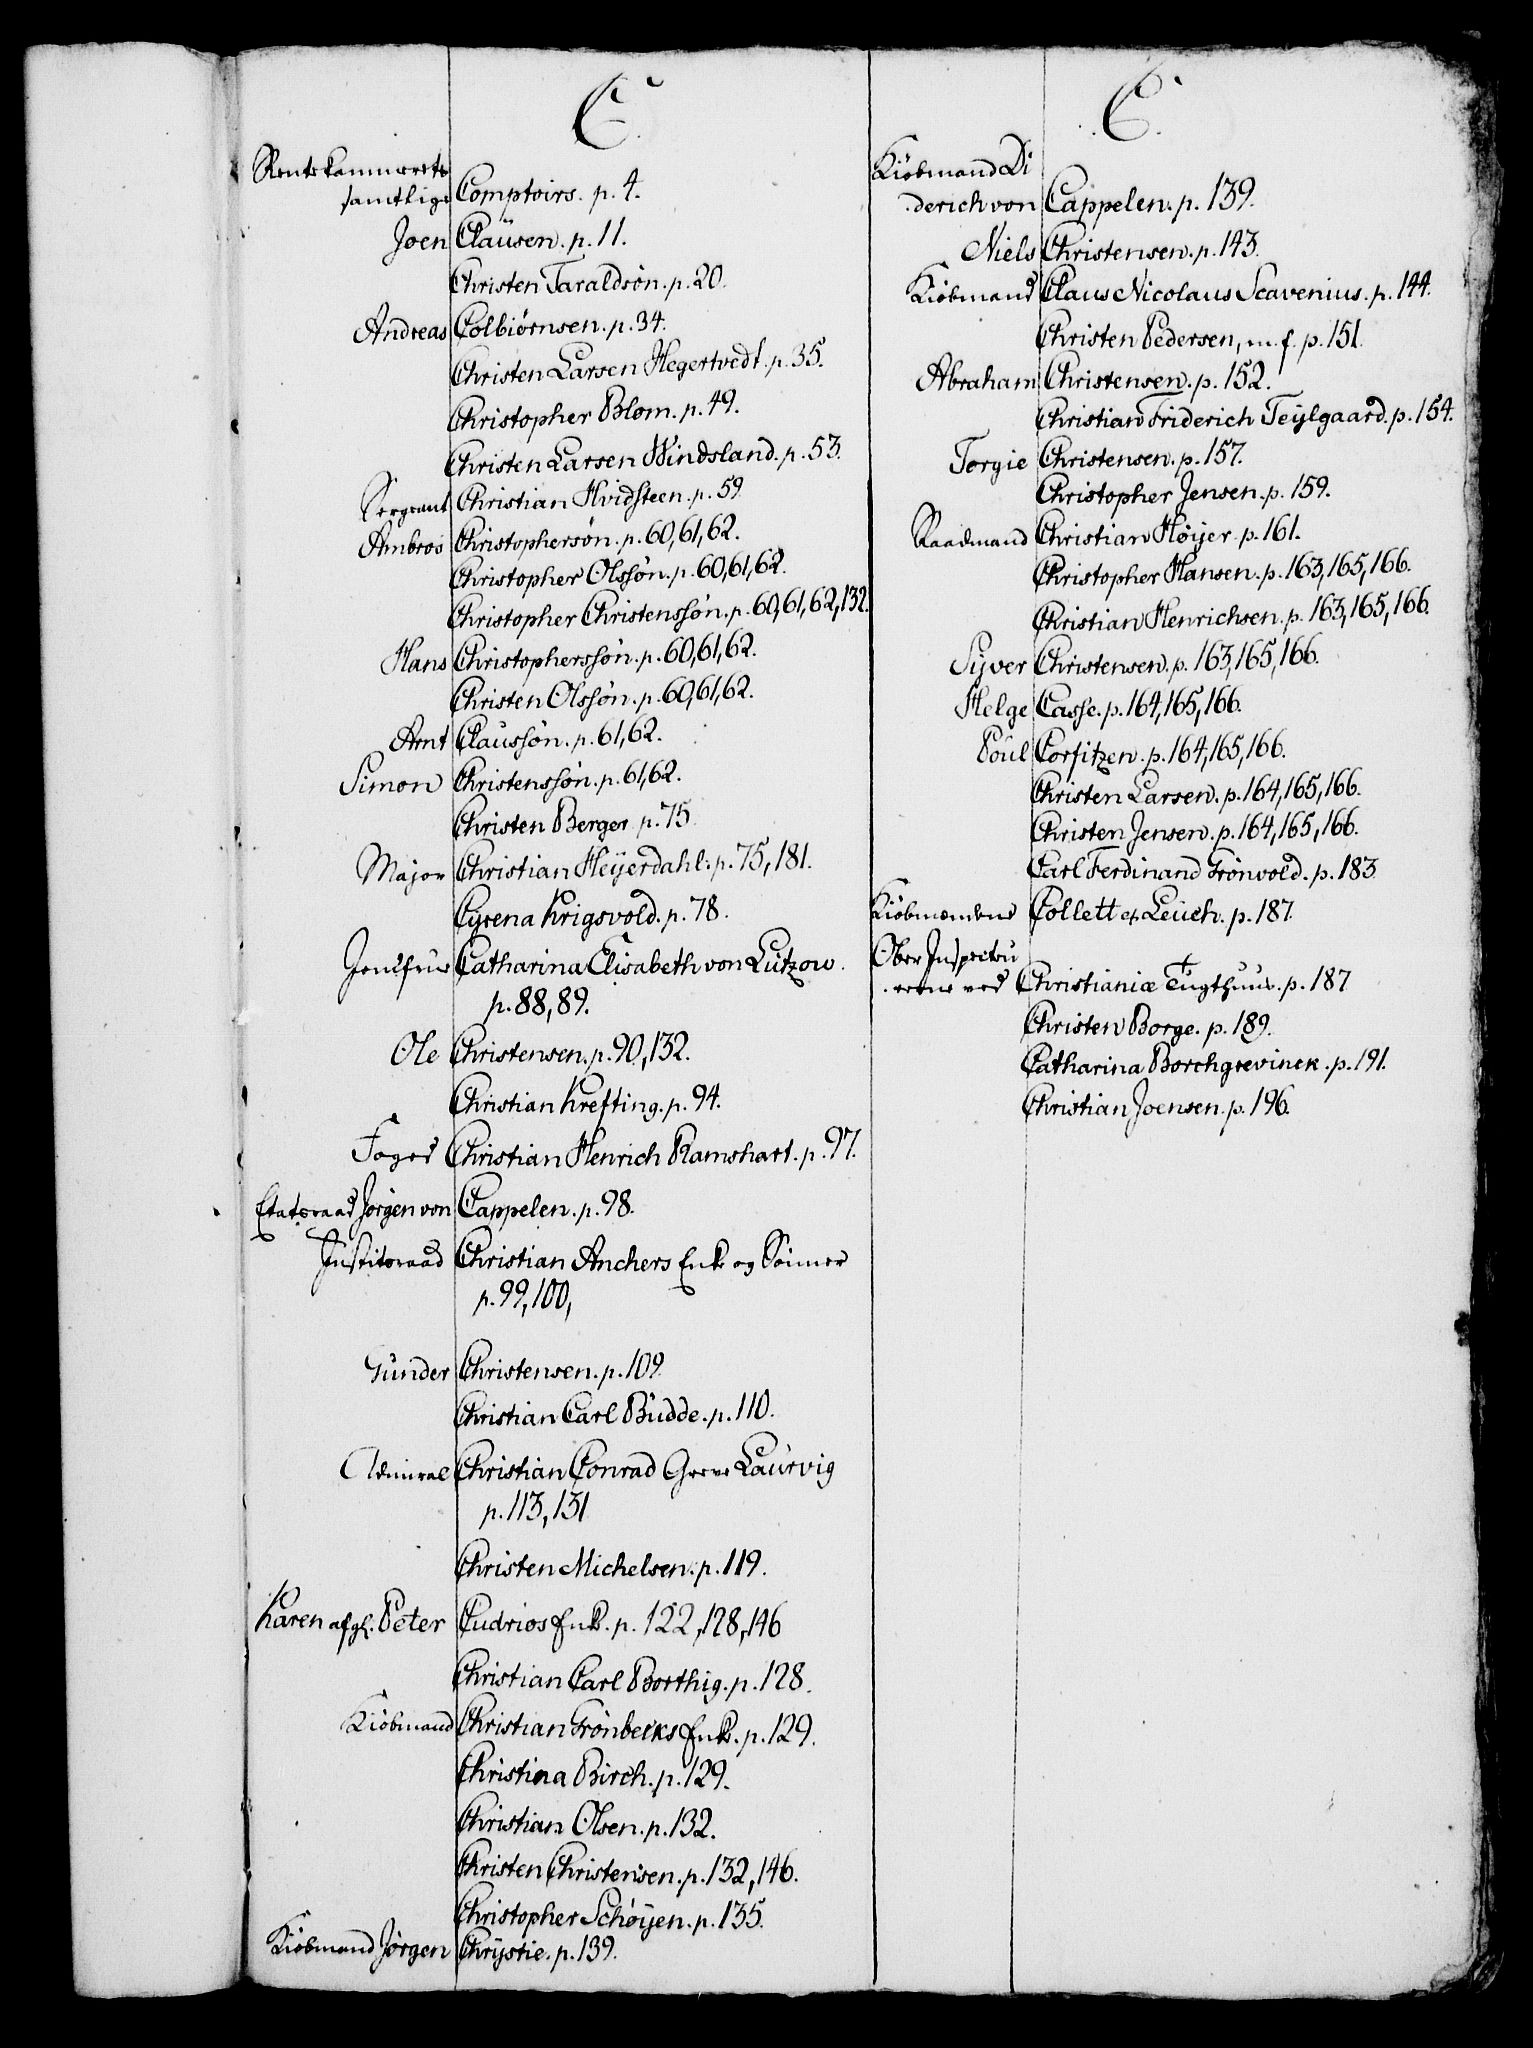 C.
Rentekammerets
samtlige Comptoirs. p. 4.
Joen Claüsen. p. 11.
Christen Taraldsøn. p. 20.
Andreas Colbiørnsen. p. 34.
Christen Larsen Hegertvedt. p. 35.
Christopher Blom. p. 49.
Christen Larsen Windsland. p. 53.
Sergeant Christian Hvidsteen. p. 59
Ambros Christophersøn. p. 60, 61, 62.
Christopher Olssøn. p. 60, 61, 62.
Christopher Christenssøn. p. 60, 61, 62, 132.
Hans Christopherssøn. p. 60, 61, 62.
Christen Olssøn. p. 60, 61, 62.
Arnt Claussøn. p. 61, 62.
Simon Christenssøn. p. 61, 62.
Christen Berger p. 75
Major Christian Heÿerdahl: p. 75, 181.
Cyrena Krigsvold. p. 78.
Jomfrue Catharina Elisabeth von Lützow.
p. 88, 89.
Ole Christensen. p. 90, 132.
Christian Krefting. p. 94.
Foged Christian Henrich Ramshart. p. 97.
Etatsraad Jørgen von Cappelen. p. 98.
Justitsraad Christian Anchers Enke og Sønner
p. 99, 100,
Gunder Christensen. p. 109.
Christian Carl Büdde. p. 110.
Admiral Christian Conrad Greve Laürvig
p. 113, 131
Christen Michelsen. p. 119.
Karen afgl. Peter Cudrios Enke. p. 122, 128, 146
Christian Carl Borthig. p. 128.
Kiöbmand Christian Grönbecks Enke. p. 129.
Christina Birch. p. 129.
Christian Olsen. p. 132.
Christen Christensen. p. 132, 146.
Christopher Schøÿen. p. 135.
Kiöbmand Jørgen Chrÿstie. p. 139.
C.
Kiöbmand Di
derich von Cappelen. p. 139.
Niels Christensen. p. 143.
Kiöbmand Claus Nicolaus Scavenius. p. 144.
Christen Pedersen, m. f. p. 151.
Abraham Christensen. p. 152.
Christian Friderich Teÿlgaard. p. 154.
Torgie Christensen. p. 157.
Christopher Jensen. p. 159.
Raadmand Christian Høÿer. p. 161.
Christopher Hansen. p. 163, 165, 166.
Christian Henrichsen. p. 163, 165, 166.
Sÿver Christensen. p. 163, 165, 166.
Helge Casse. p. 164, 165, 166.
Poül Corfitzen. p. 164, 165, 166.
Christen Larsen. p. 164, 165, 166.
Christen Jensen. p. 164, 165, 166.
Carl Ferdinand Grönvold. p. 183
Kiöbmændene Collett & Leuch. p. 187.
Ober Inspecteu
rerne ved Christianiæ Tugthuus. p. 187
Christen Borge. p. 189.
Catharina Borchgrevinck. p. 191.
Christian Joensen. p. 196.